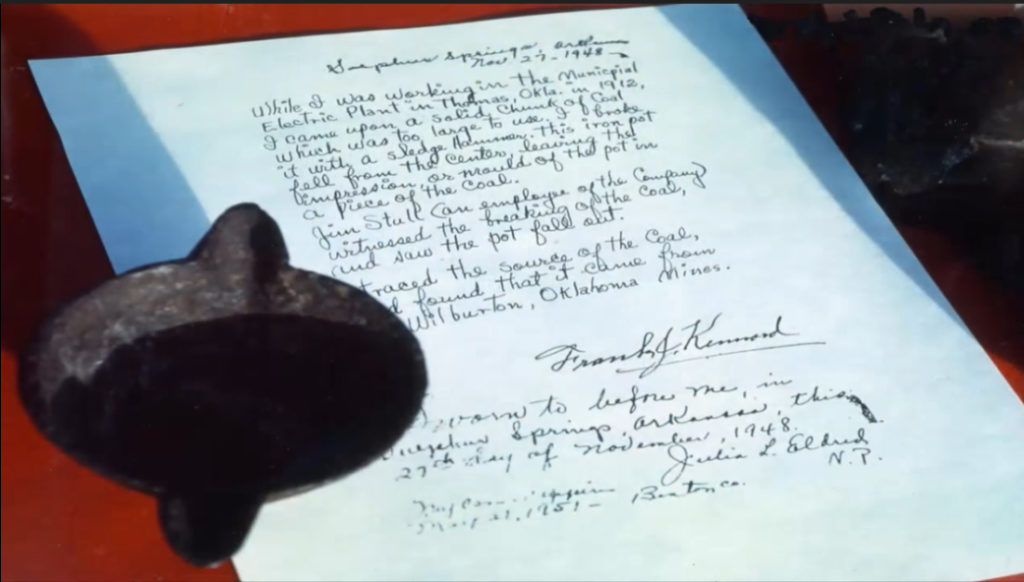 Sulphur Springs, Arkansas
Nov 27, 1948
While I was working in the Municipial
Electric Plant in Thomas, Okla. in 1912,
I came upon a solid chunk of Coal
which was too large to use. I broke
it with a sledge Hammer. This iron pot
fell from the Center, leaving the
impression, or mould of the pot in
a piece of the Coal.
Jim Stull (an employee of the Company)
witnessed the breaking of the Coal,
and saw the pot fall out.
traced the source of the Coal,
found that it came from
Wilburton, Oklahoma Mines.
Frank J. Kennard
Sworn to before me, in
Sulphur Springs, Arkansas, this
27th day of November, 1948.
Julia L. Eldred
N.P.
Benton co.
1951 -